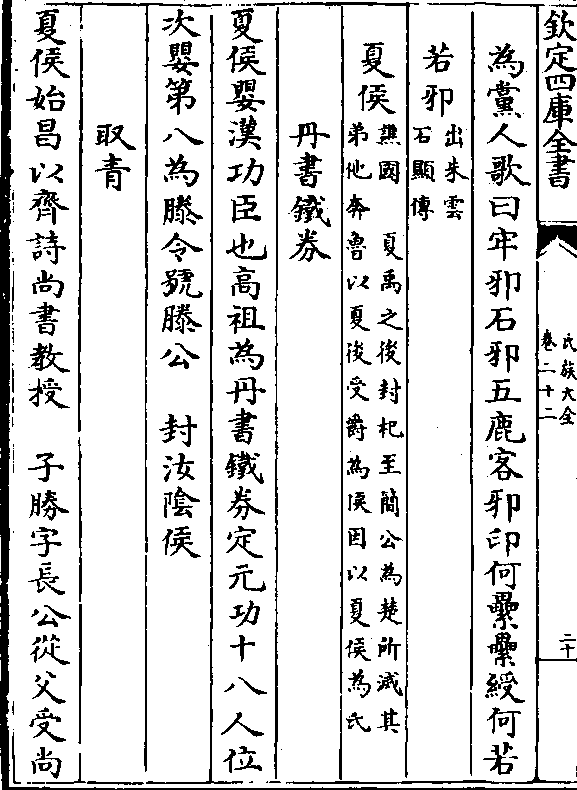 欽定四庫全書
氏族大全
卷二十二
二十
為黨人歌曰牢邪石邪五鹿客邪印何纍纍綬何若
若邪出朱雲
石顯傳
夏侯譙國　夏禹之後封杞至簡公為楚所滅其
弟他奔魯以夏後受爵為侯因以夏侯為氏
丹書鐵券
夏侯嬰漢功臣也高祖為丹書鐵券定元功十八人位
次嬰第八為滕令號滕公　封汝陰侯
取青
夏侯始昌以齊詩尚書教授　子勝字長公從父受尚